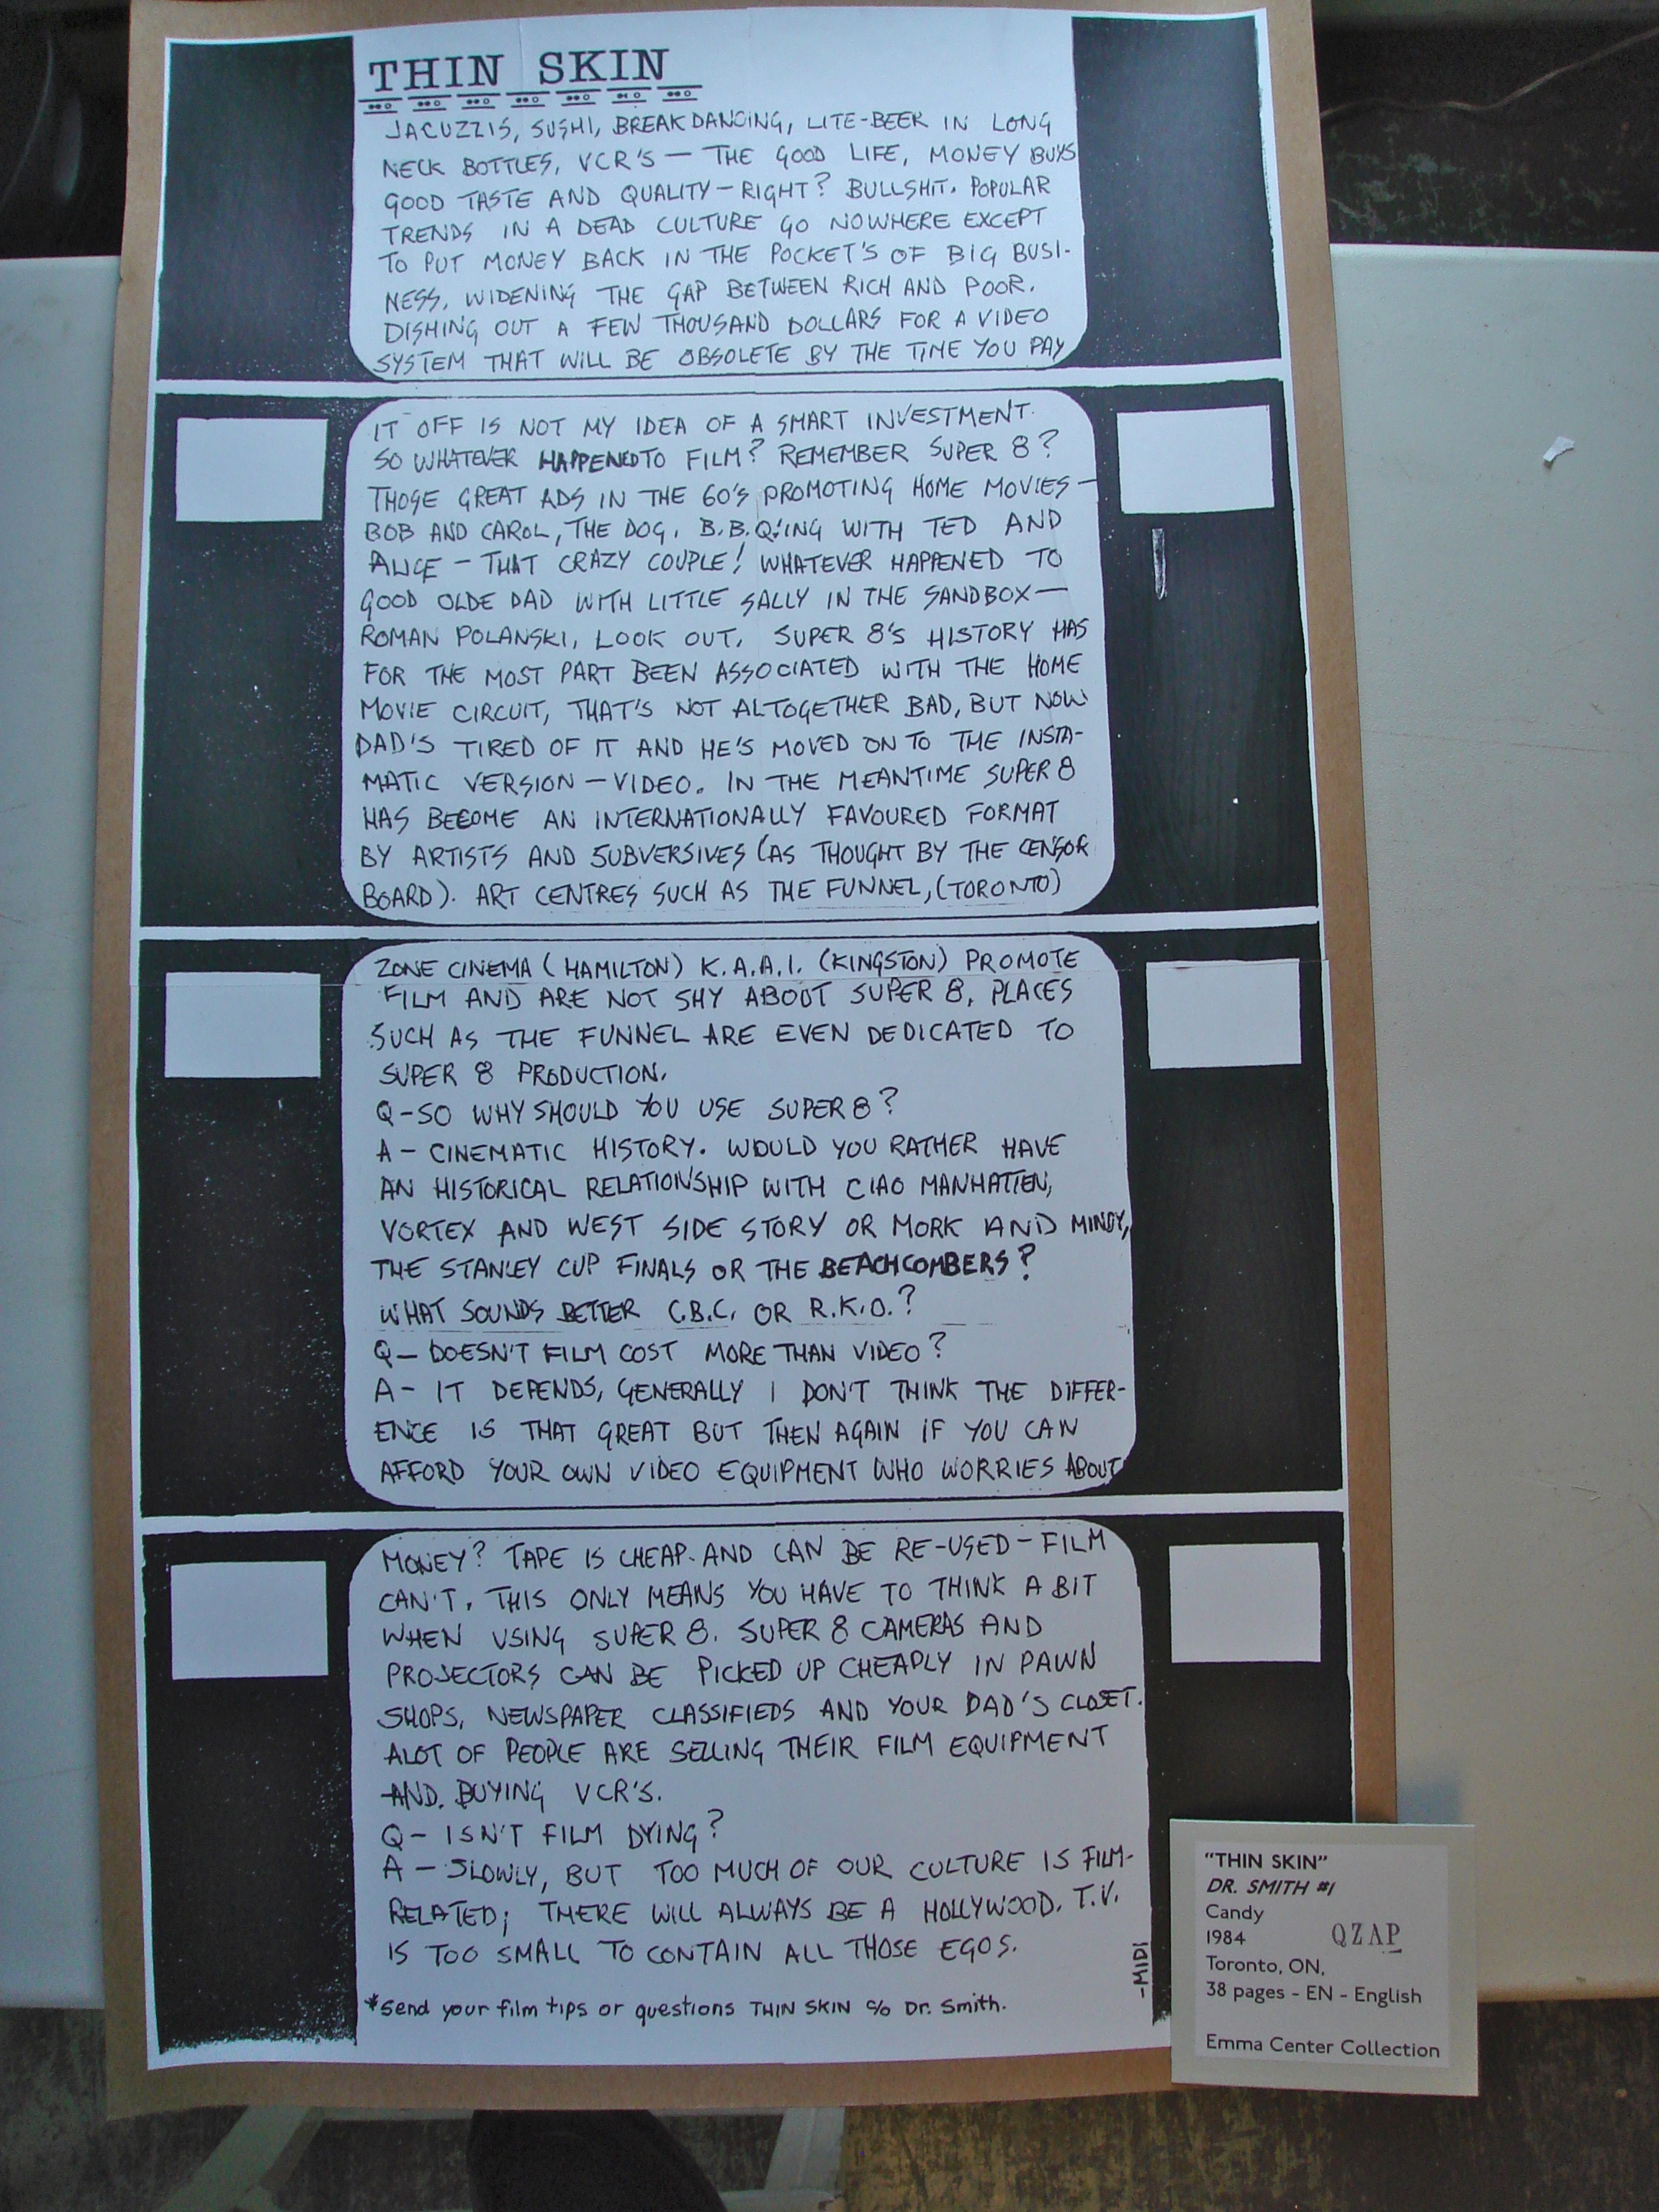 THIN SKIN
JACUZZIS, SUSHI, BREAKDANCING, LITE-BEER IN LONG
NECK BOTTLES, VCR'S — THE GOOD LIFE, MONEY BUYS
GOOD TASTE AND QUALITY — RIGHT? BULLSHIT. POPULAR
TRENDS IN A DEAD CULTURE GO NOWHERE EXCEPT
TO PUT MONEY BACK IN THE POCKET'S OF BIG BUSI-
NESS, WIDENING THE GAP BETWEEN RICH AND POOR.
DISHING OUT A FEW THOUSAND DOLLARS FOR A VIDEO
SYSTEM THAT WILL BE OBSOLETE BY THE TIME YOU PAY
IT OFF IS NOT MY IDEA OF A SMART INVESTMENT.
SO WHATEVER HAPPENED TO FILM? REMEMBER SUPER 8?
THOSE GREAT ADS IN THE 60'S PROMOTING HOME MOVIES —
BOB AND CAROL, THE DOG, B.B.Q.'ING WITH TED AND
ALICE — THAT CRAZY COUPLE! WHATEVER HAPPENED TO
GOOD OLDE DAD WITH LITTLE SALLY IN THE SANDBOX —
ROMAN POLANSKI, LOOK OUT. SUPER 8'S HISTORY HAS
FOR THE MOST PART BEEN ASSOCIATED WITH THE HOME
MOVIE CIRCUIT, THAT'S NOT ALTOGETHER BAD, BUT NOW
DAD'S TIRED OF IT AND HE'S MOVED ON TO THE INSTA-
MATIC VERSION — VIDEO. IN THE MEANTIME SUPER 8
HAS BECOME AN INTERNATIONALLY FAVOURED FORMAT
BY ARTISTS AND SUBVERSIVES (AS THOUGHT BY THE CENSOR
BOARD). ART CENTRES SUCH AS THE FUNNEL, (TORONTO)
ZONE CINEMA (HAMILTON) K.A.A.I. (KINGSTON) PROMOTE
FILM AND ARE NOT SHY ABOUT SUPER 8, PLACES
SUCH AS THE FUNNEL ARE EVEN DEDICATED TO
SUPER 8 PRODUCTION.
Q - SO WHY SHOULD YOU USE SUPER 8?
A - CINEMATIC HISTORY. WOULD YOU RATHER HAVE
AN HISTORICAL RELATIONSHIP WITH CIAO MANHATTEN,
VORTEX AND WEST SIDE STORY OR MORK AND MINDY,
THE STANLEY CUP FINALS OR THE BEACHCOMBERS?
WHAT SOUNDS BETTER C.B.C. OR R.K.O.?
Q — DOESN'T FILM COST MORE THAN VIDEO?
A - IT DEPENDS, GENERALLY I DON'T THINK THE DIFFER-
ENCE IS THAT GREAT BUT THEN AGAIN IF YOU CAN
AFFORD YOUR OWN VIDEO EQUIPMENT WHO WORRIES ABOUT
MONEY? TAPE IS CHEAP AND CAN BE RE-USED - FILM
CAN'T. THIS ONLY MEANS YOU HAVE TO THINK A BIT
WHEN USING SUPER 8. SUPER 8 CAMERAS AND
PROJECTORS CAN BE PICKED UP CHEAPLY IN PAWN
SHOPS, NEWSPAPER CLASSIFIEDS AND YOUR DAD'S CLOSET.
ALOT OF PEOPLE ARE SELLING THEIR FILM EQUIPMENT
AND BUYING VCR'S.
Q - ISN'T FILM DYING?
A - SLOWLY, BUT TOO MUCH OF OUR CULTURE IS FILM-
RELATED; THERE WILL ALWAYS BE A HOLLYWOOD. T.V.
IS TOO SMALL TO CONTAIN ALL THOSE EGOS.
-MIDI
*Send your film tips or questions THIN SKIN c/o Dr. Smith.
"THIN SKIN"
DR. SMITH #1
Candy
1984
QZAP
Toronto, ON,
38 pages - EN - English
Emma Center Collection